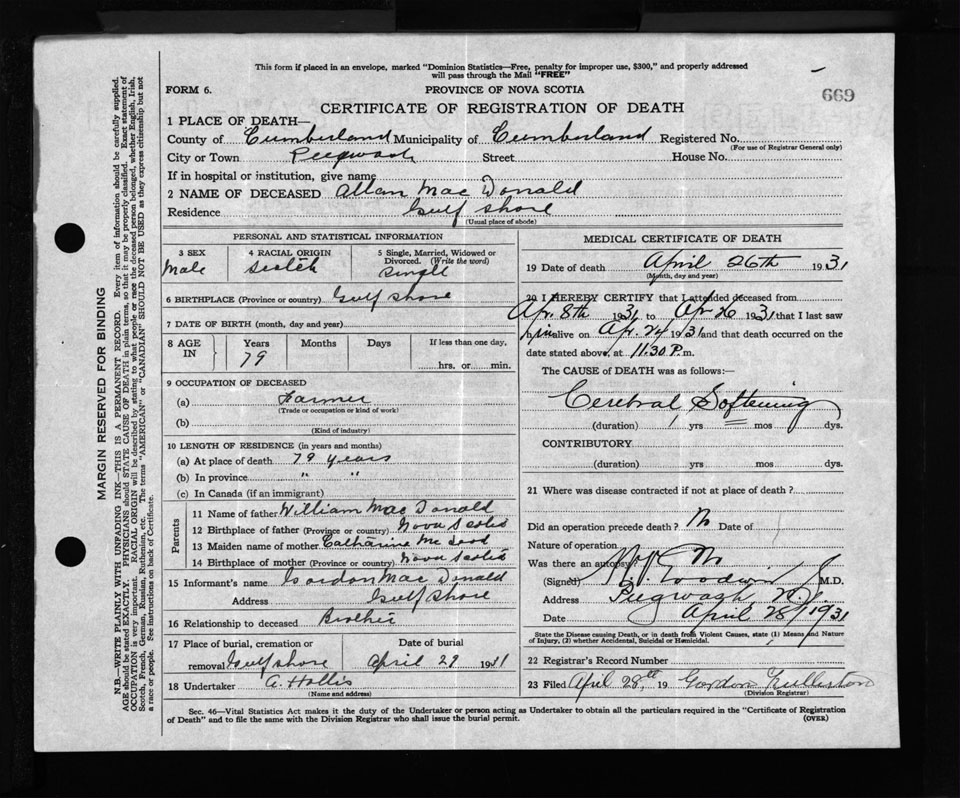 This form if placed in an envelope, marked "Dominion Statistics—Free, penalty for improper use, $300," and properly addressed
will pass through the Mail "FREE"
FORM 6.
PROVINCE OF NOVA SCOTIA
669
CERTIFICATE OF REGISTRATION OF DEATH
1 PLACE OF DEATH—
County of Cumberland Municipality of Cumberland Registered No.
(For use of Registrar General only)
City or Town Pugwash Street House No.
If in hospital or institution, give name
2 NAME OF DECEASED Allan Mac Donald
Residence Gulf Shore
(Usual place of abode)
PERSONAL AND STATISTICAL INFORMATION
3 SEX 4 RACIAL ORIGIN 5 Single, Married, Widowed or
Divorced. (Write the word)
Male Scotch Single
6 BIRTHPLACE (Province or country) Gulf Shore
7 DATE OF BIRTH (month, day and year)
8 AGE IN Years Months Days If less than one day,
79 hrs. or min.
9 OCCUPATION OF DECEASED
(a) Farmer
(Trade or occupation or kind of work)
(b)
(Kind of industry)
10 LENGTH OF RESIDENCE (in years and months)
(a) At place of death 79 years
(b) In province " "
(c) In Canada (if an immigrant)
Parents
11 Name of father William Mac Donald
12 Birthplace of father (Province or country) Nova Scotia
13 Maiden name of mother Catharine Mc
14 Birthplace of mother (Province or country) Nova Scotia
15 Informant's name Gordon Mac Donald
Address Gulf Shore
16 Relationship to deceased Brother
17 Place of burial, cremation or Date of burial
removal Gulf Shore April 29 1931
18 Undertaker A. Hollis
(Name and address)
MEDICAL CERTIFICATE OF DEATH
19 Date of death April 26th 1931
(Month, day and year)
20 I HEREBY CERTIFY that I attended deceased from
Apr. 8th 1931 to Apr 26 1931 that I last saw
him alive on Apr. 24 1931 and that death occurred on
date stated above, at 11.30 P.m.
The CAUSE of DEATH was as follows:—
Cerebral Softening
(duration) 1 yrs mos dys.
CONTRIBUTORY
(duration) yrs mos dys.
21 Where was disease contracted if not at place of death?
Did an operation precede death? No Date of
Nature of operation
Was there an autopsy? No
(Signed) Goodwin M.D.
Address Pugwash N.S.
Date April 28/1931
State the Disease causing Death, or in death from Violent Causes, state (1) Means and Nature
of Injury, (2) whether Accidental, Suicidal or Homicidal.
22 Registrar's Record Number
23 Filed April 28th 19 Gordon
(Division Registrar)
Sec. 46—Vital Statistics Act makes it the duty of the Undertaker or person acting as Undertaker to obtain all the particulars required in the "Certificate of Registration
of Death" and to file the same with the Division Registrar who shall issue the burial permit.
(OVER)
MARGIN RESERVED FOR BINDING
N.B.—WRITE PLAINLY WITH UNFADING INK—THIS IS A PERMANENT RECORD. Every item of information should be carefully supplied.
AGE should be stated EXACTLY. PHYSICIANS should STATE CAUSE OF DEATH in plain terms, so that it may be properly classified. Exact statement of
OCCUPATION is very important. RACIAL ORIGIN will be described by stating to what people or race the deceased person belonged, whether English, Irish,
Scotch, French, German, Russian, Ruthenian, etc. The terms "AMERICAN" or "CANADIAN" SHOULD NOT BE USED as they express citizenship but not
a race or people. See instructions on back of Certificate.